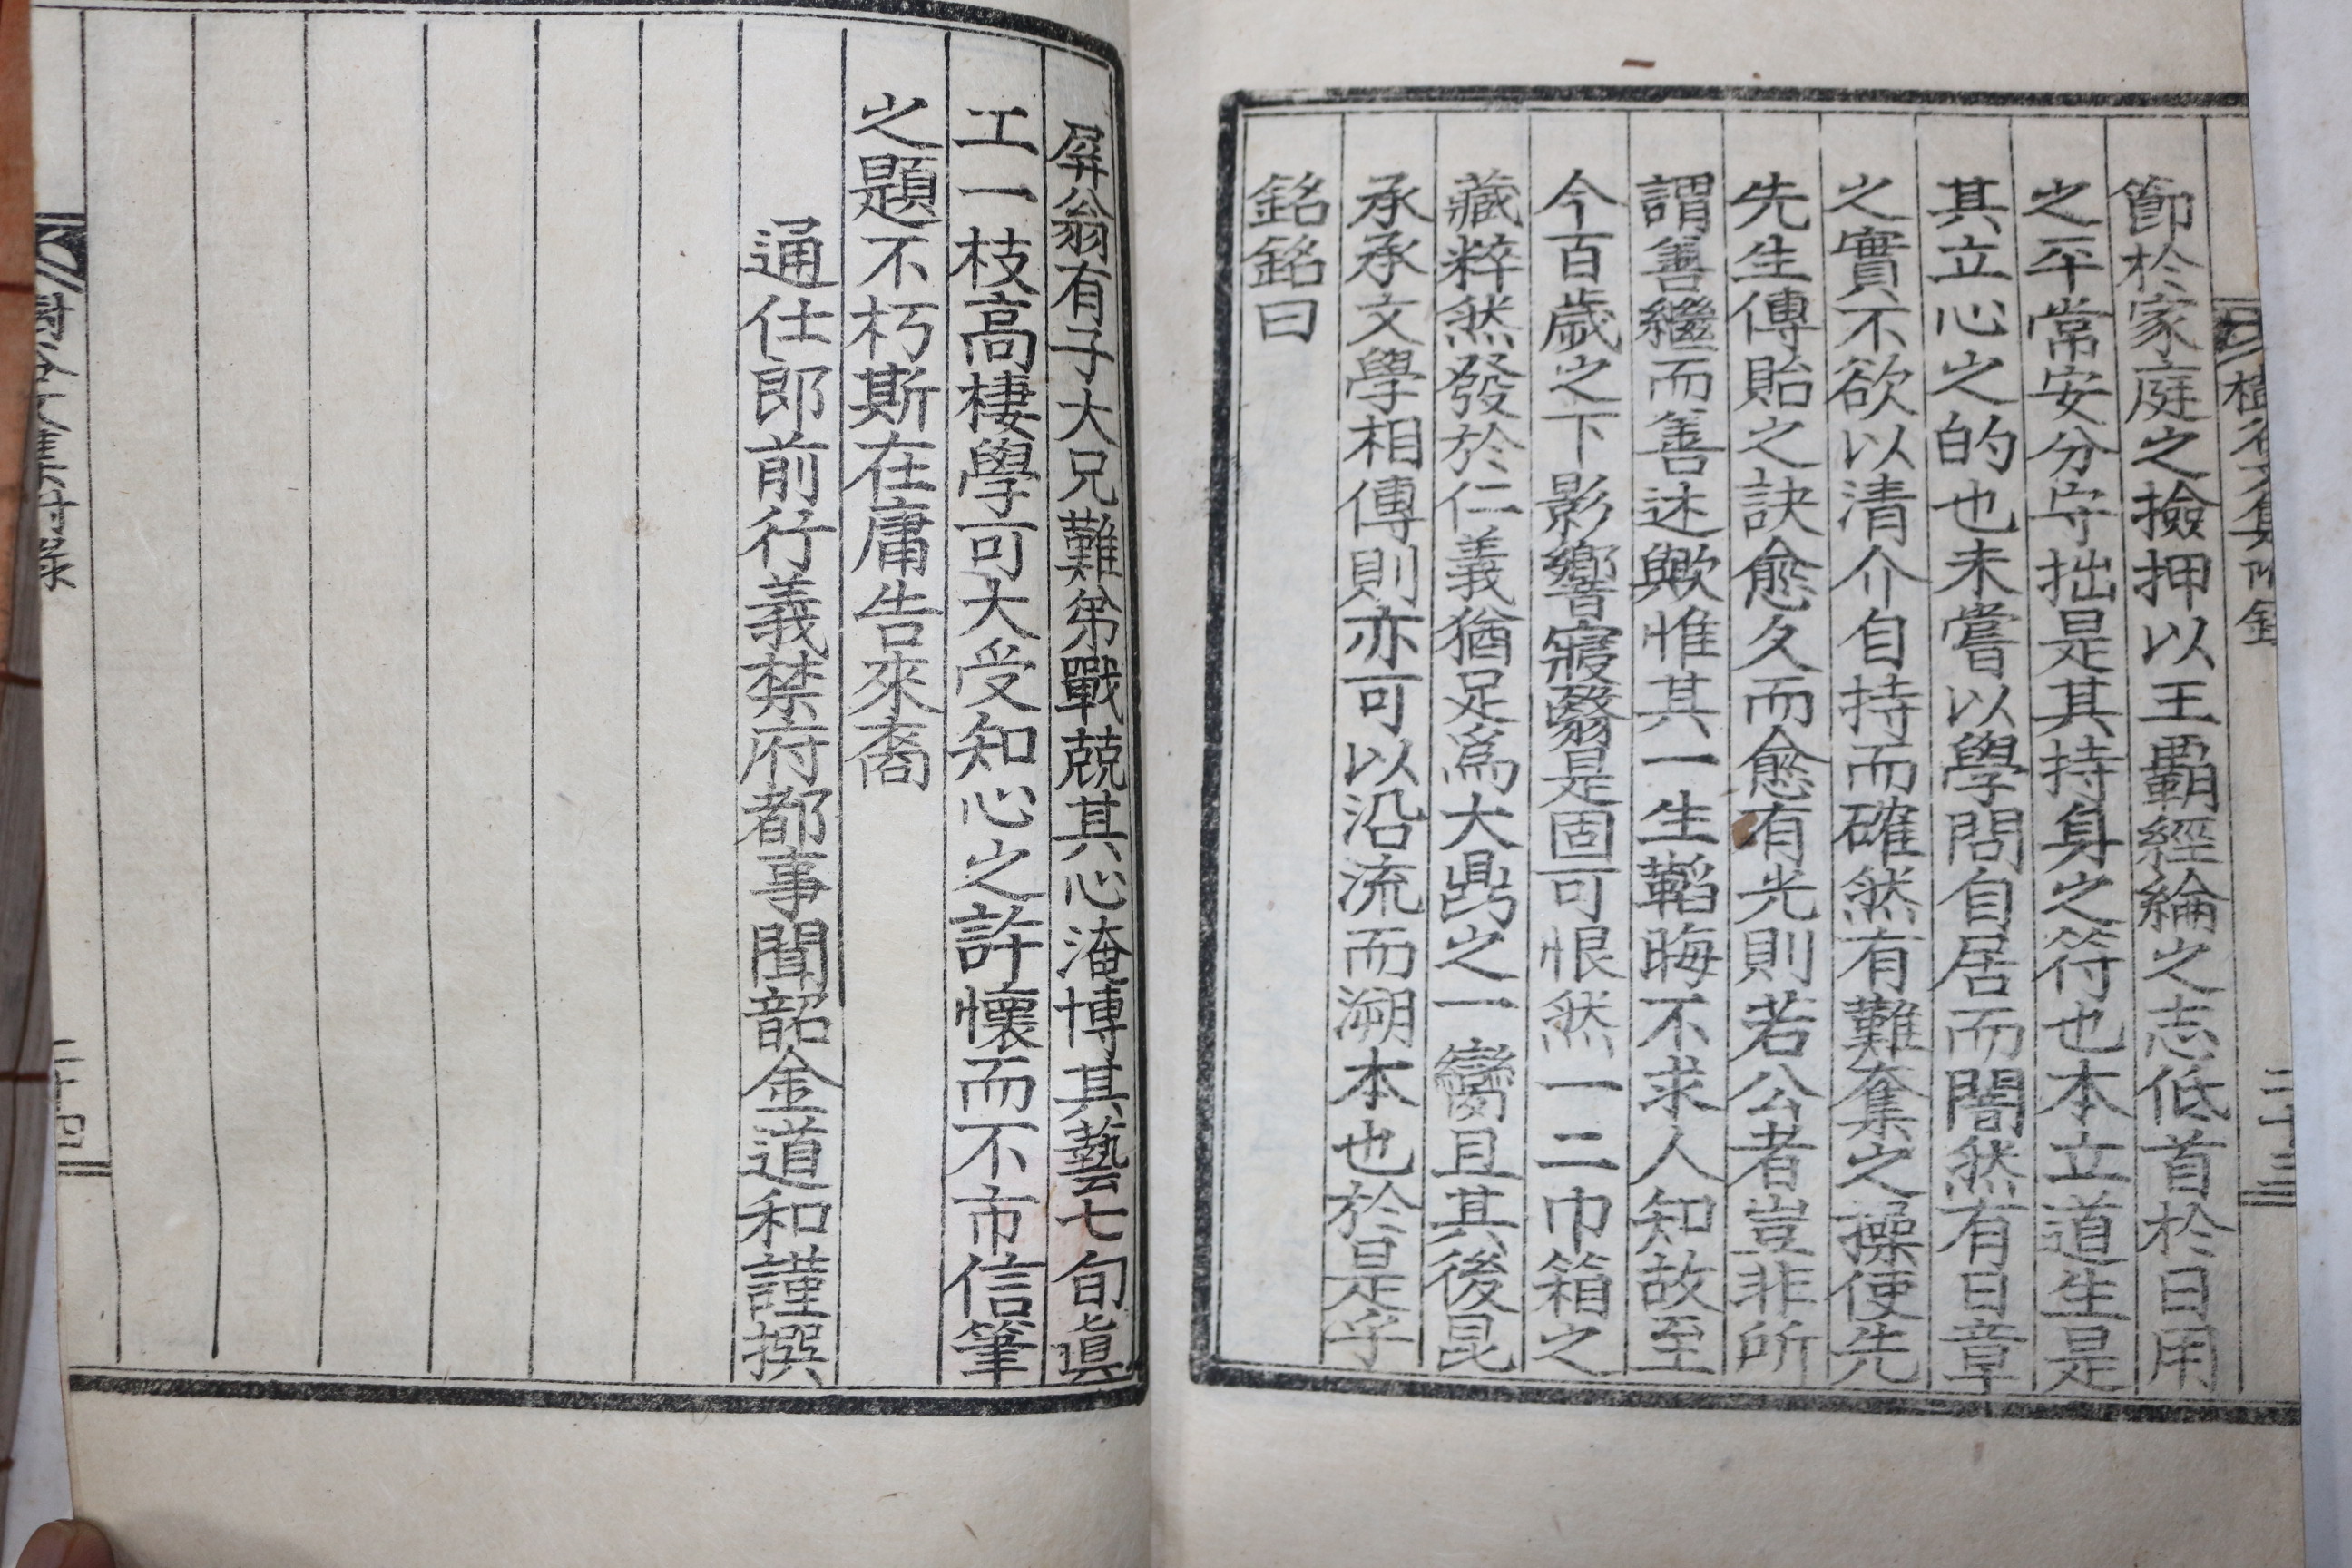 節於家庭之撿押以王覇經綸之志低首於日用
之平常安分守拙是其持身之符也本立道生是
其立心之的也未嘗以學問自居而闇然有日章
之實不欲以清介自持而確然有難奪之操便先
先生傳貽之訣愈久而愈有光則若公者豈非所
謂善繼而善述歟惟其一生韜晦不求人知故至
今百歲之下影響寢翳是固可恨然一二巾箱之
藏粹然發於仁義猶足爲大鼎之一臠且其後昆
承承文學相傳則亦可以沿流而溯本也於是乎
銘銘曰
屛翁有子大兄難弟戰兢其心淹博其藝七旬眞
工一枝高棲學可大受知心之許懷而不市信筆
之題不朽斯在庸告來裔
通仕郎前行義禁府都事聞韶金道和謹撰
二十三
二十四